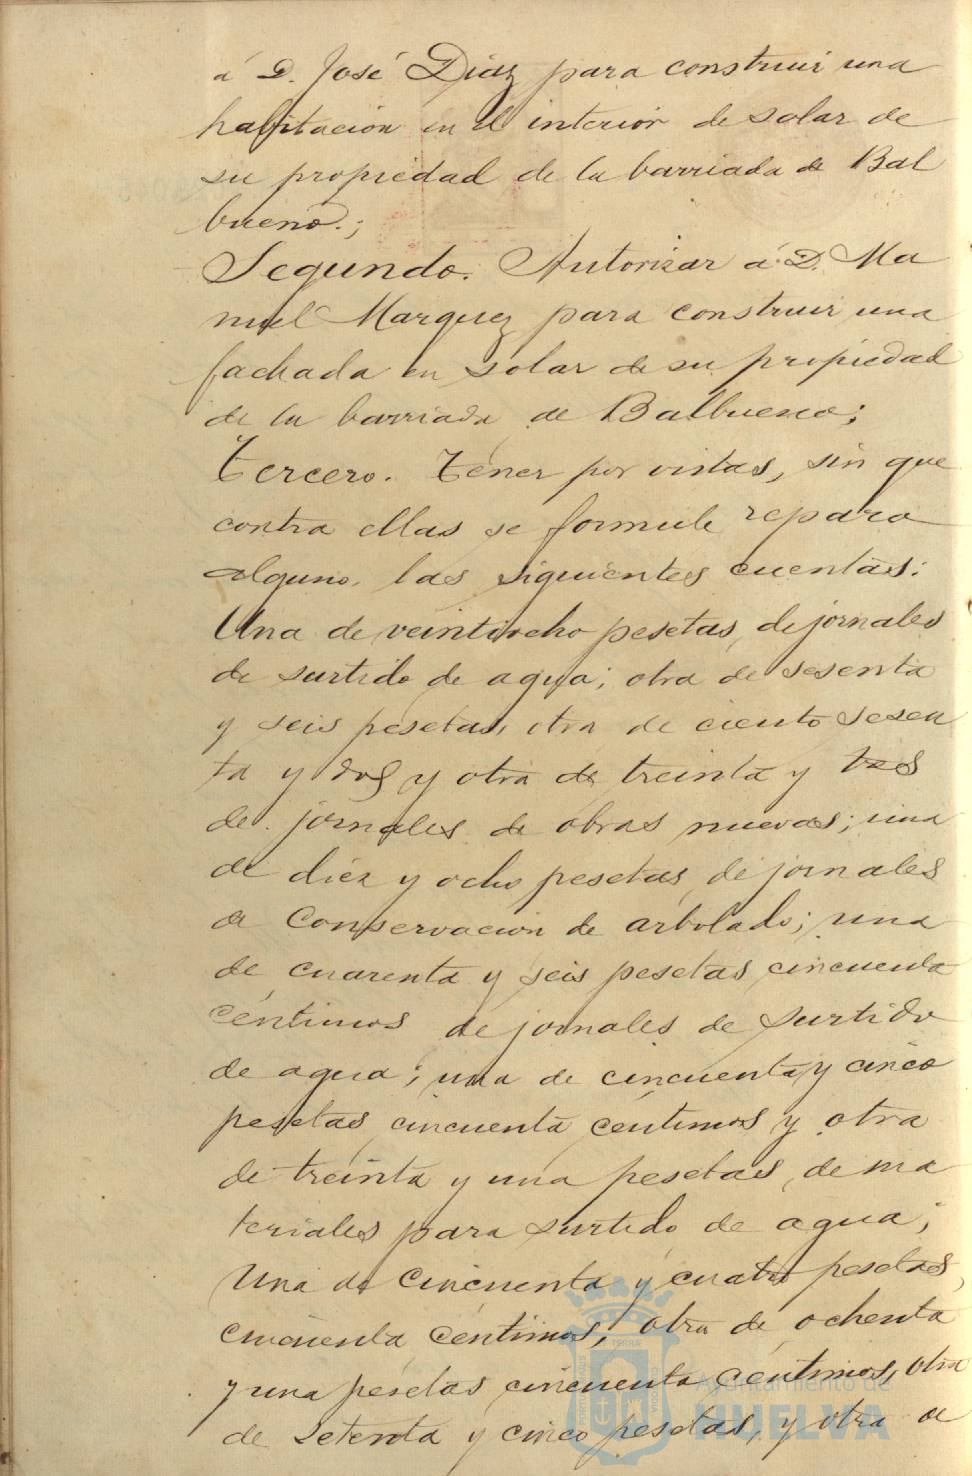 á D. José Diaz para construir una
habitacion en el interior de solar de
su propiedad de la barriada de Bal
bueno.;
Segundo. Autorizar á D. Ma
nuel Marquez para construir una
fachada en solar de su propiedad
de la barriada de Balbueno;
Tercero. Tener por vistas, sin que
contra ellas se formule reparo
alguno, las siguientes cuentas:
Una de veintiocho pesetas, de jornales
de surtido de agua; otra de sesenta
y seis pesetas, otra de ciento sesen
ta y dos y otra de treinta y tres
de jornales de obras nuevas; una
de diez y ocho pesetas, de jornales
de conservacion de arbolado; una
de cuarenta y seis pesetas cincuenta
céntimos de jornales de surtido
de agua; una de cincuenta y cinco
pesetas cincuenta céntimos y otra
de treinta y una pesetas, de ma
teriales para surtido de agua;
Una de cincuenta y cuatro pesetas,
cincuenta céntimos, otra de ochenta
y una pesetas cincuenta céntimos, otra
de setenta y cinco pesetas, y otra de
Ayuntamiento de
HUELVA